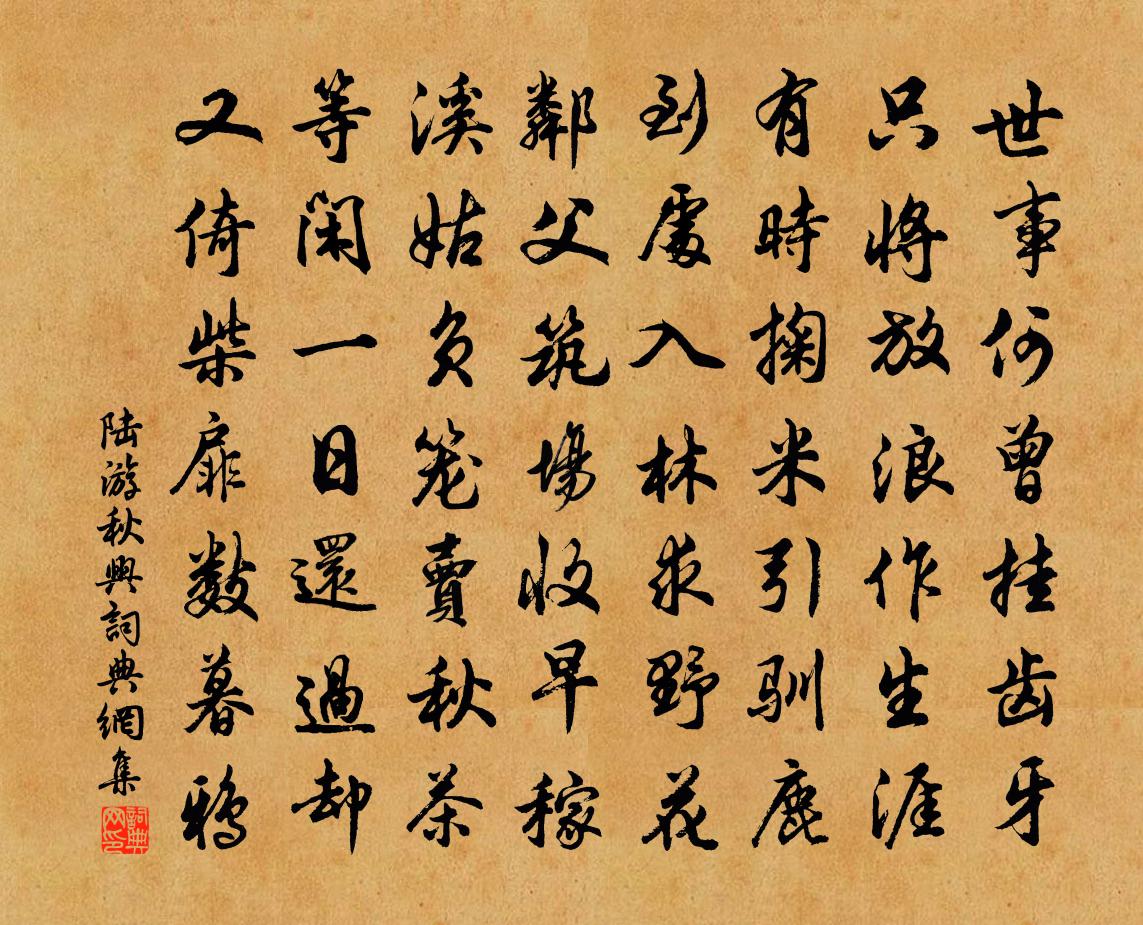 世事何曾挂齿牙
只将放浪作生涯
有時掬米引驯鹿
到處入林求野花
鄰父筑場收早稼
溪姑负笼賣秋茶
等闲一日還過却
又倚柴扉数暮鸦
陆游秋興詞典網集
詞典网印